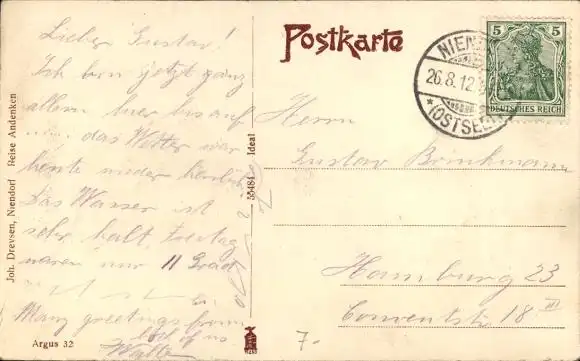 Lieber Gustav!
Ich bin jetzt ganz
allein hier bis auf
das Wetter war
heute wieder
Das Wasser ist
sehr kalt Freitag
waren nur 11 Grad
Many greetings from
both of us
Walter
Postkarte
NIENDORF
26.8.12
*(OSTSEE)
5 5
DEUTSCHES REICH
Herrn
Gustav Brinkmann
Hamburg 23
Conventstr. 18 III
Joh. Drevsen, Niendorf Reise Andenken
55484 Ideal
Argus 32
7.-